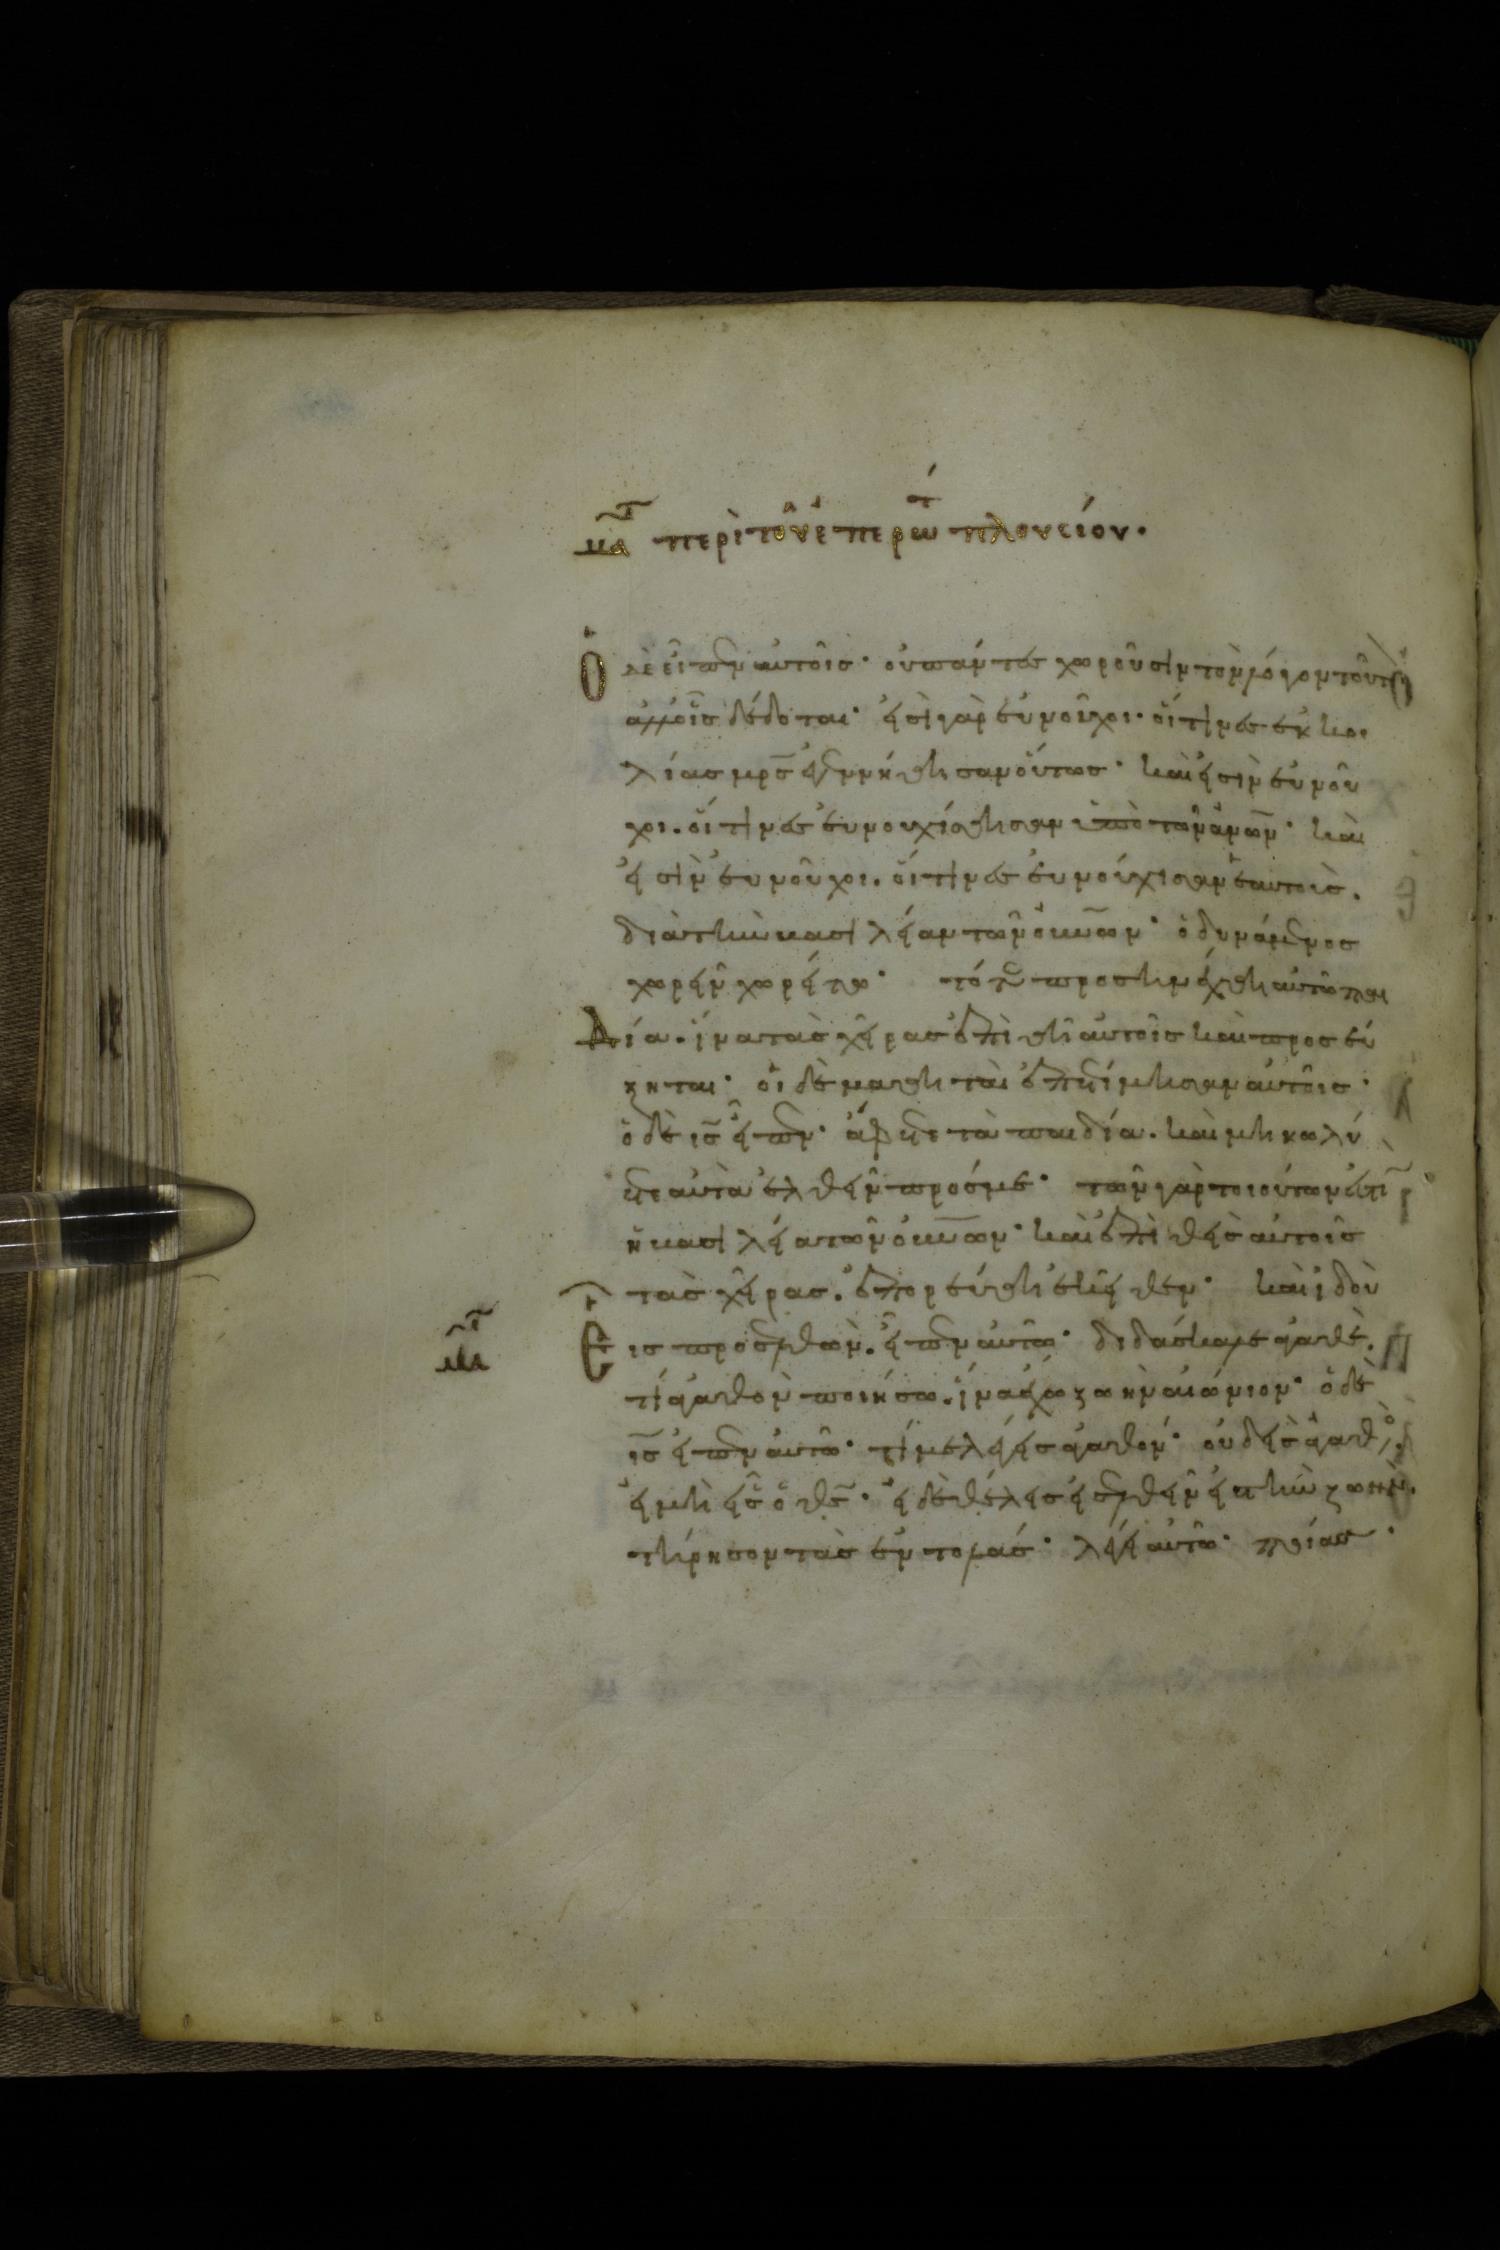 μα περὶ τοῦ ἐπερωτ πλουσίου·
Ὁ δὲ εἶπεν αὐτοῖς· οὐ πάντες χωροῦσιν τὸν λόγον τοῦτον
ἀλλ' οἷς δέδοται· εἰσὶ γὰρ εὐνοῦχοι· οἵτινες ἐκ κοι
λίας μρς ἐγεννήθησαν οὕτως· καὶ εἰσὶν εὐνοῦ
χοι. οἵτινες εὐνουχίσθησαν ὑπὸ τῶν ἀνων· καὶ
εἰσὶν εὐνοῦχοι. οἵτινες εὐνούχισαν ἑαυτοὺς.
διὰ τὴν βασιλείαν τῶν οὐνων· ὁ δυνάμενος
χωρεῖν χωρείτω· τότε προσηνέχθη αὐτῶ παι
δία. ἵνα τὰς χεῖρας ἐπιθῆ αὐτοῖς καὶ προσεύ
ξηται· οἱ δὲ μαθηταὶ ἐπετίμησαν αὐτοῖς·
ὁ δὲ ις εἶπεν· ἄφετε τὰ παιδία. καὶ μὴ κωλύ
ετε αὐτὰ ἐλθεῖν πρός με· τῶν γὰρ τοιούτων ἐστὶν
ἡ βασιλεία τῶν οὐνων· καὶ ἐπιθεὶς αὐτοῖς
τὰς χεῖρας. ἐπορεύθη ἐκεῖθεν· καὶ ἰδοὺ
μα Εἷς προσελθὼν. εἶπεν αὐτῶ· διδάσκαλε ἀγαθὲ.
τί ἀγαθὸν ποιήσω. ἵνα ἔχω ζωὴν αἰώνιον· ὁ δὲ
ις εἶπεν αὐτῶ· τί με λέγεις ἀγαθόν· οὐδεὶς ἀγαθὸς.
εἰ μὴ εἷς ὁ θς· εἰ δὲ θέλεις εἰσελθεῖν εἰς τὴν ζωὴν.
τήρησον τὰς ἐντολάς· λέγει αὐτῶ· ποίας·